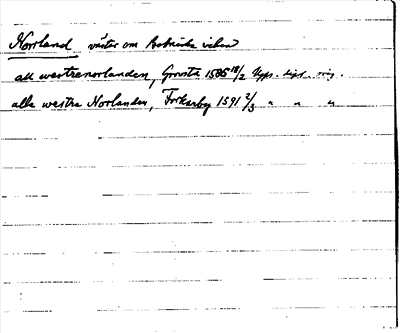 Norrland väster om Botniska viken
all westranorlanden, 1585 18/2 Upps. dipl. orig.
alla westra Norlanden, Torkarby 1591 2/3 " " "